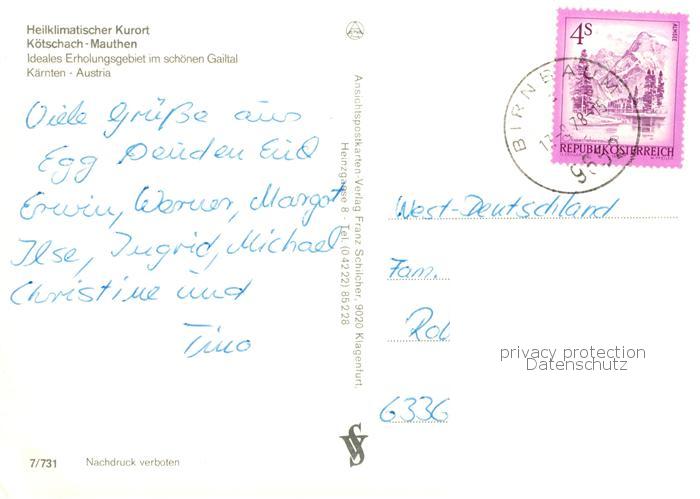 Heilklimatischer Kurort
Kötschach-Mauthen
Ideales Erholungsgebiet im schönen Gailtal
Kärnten - Austria
Viele Grüße aus
Egg senden Euch
Erwin, Werner, Margot
Ilse, Ingrid, Michael
Christine und
Timo
7/731 Nachdruck verboten
Ansichtspostkarten-Verlag Franz Schilcher, 9020 Klagenfurt,
Heinzgasse 8 - Tel. (0 42 22) 85 2 28
4S
ALMSEE
REPUBLIK ÖSTERREICH
BIRNBAUM
9652
West-Deutschland
Fam.
Rob
6336
privacy protection
Datenschutz